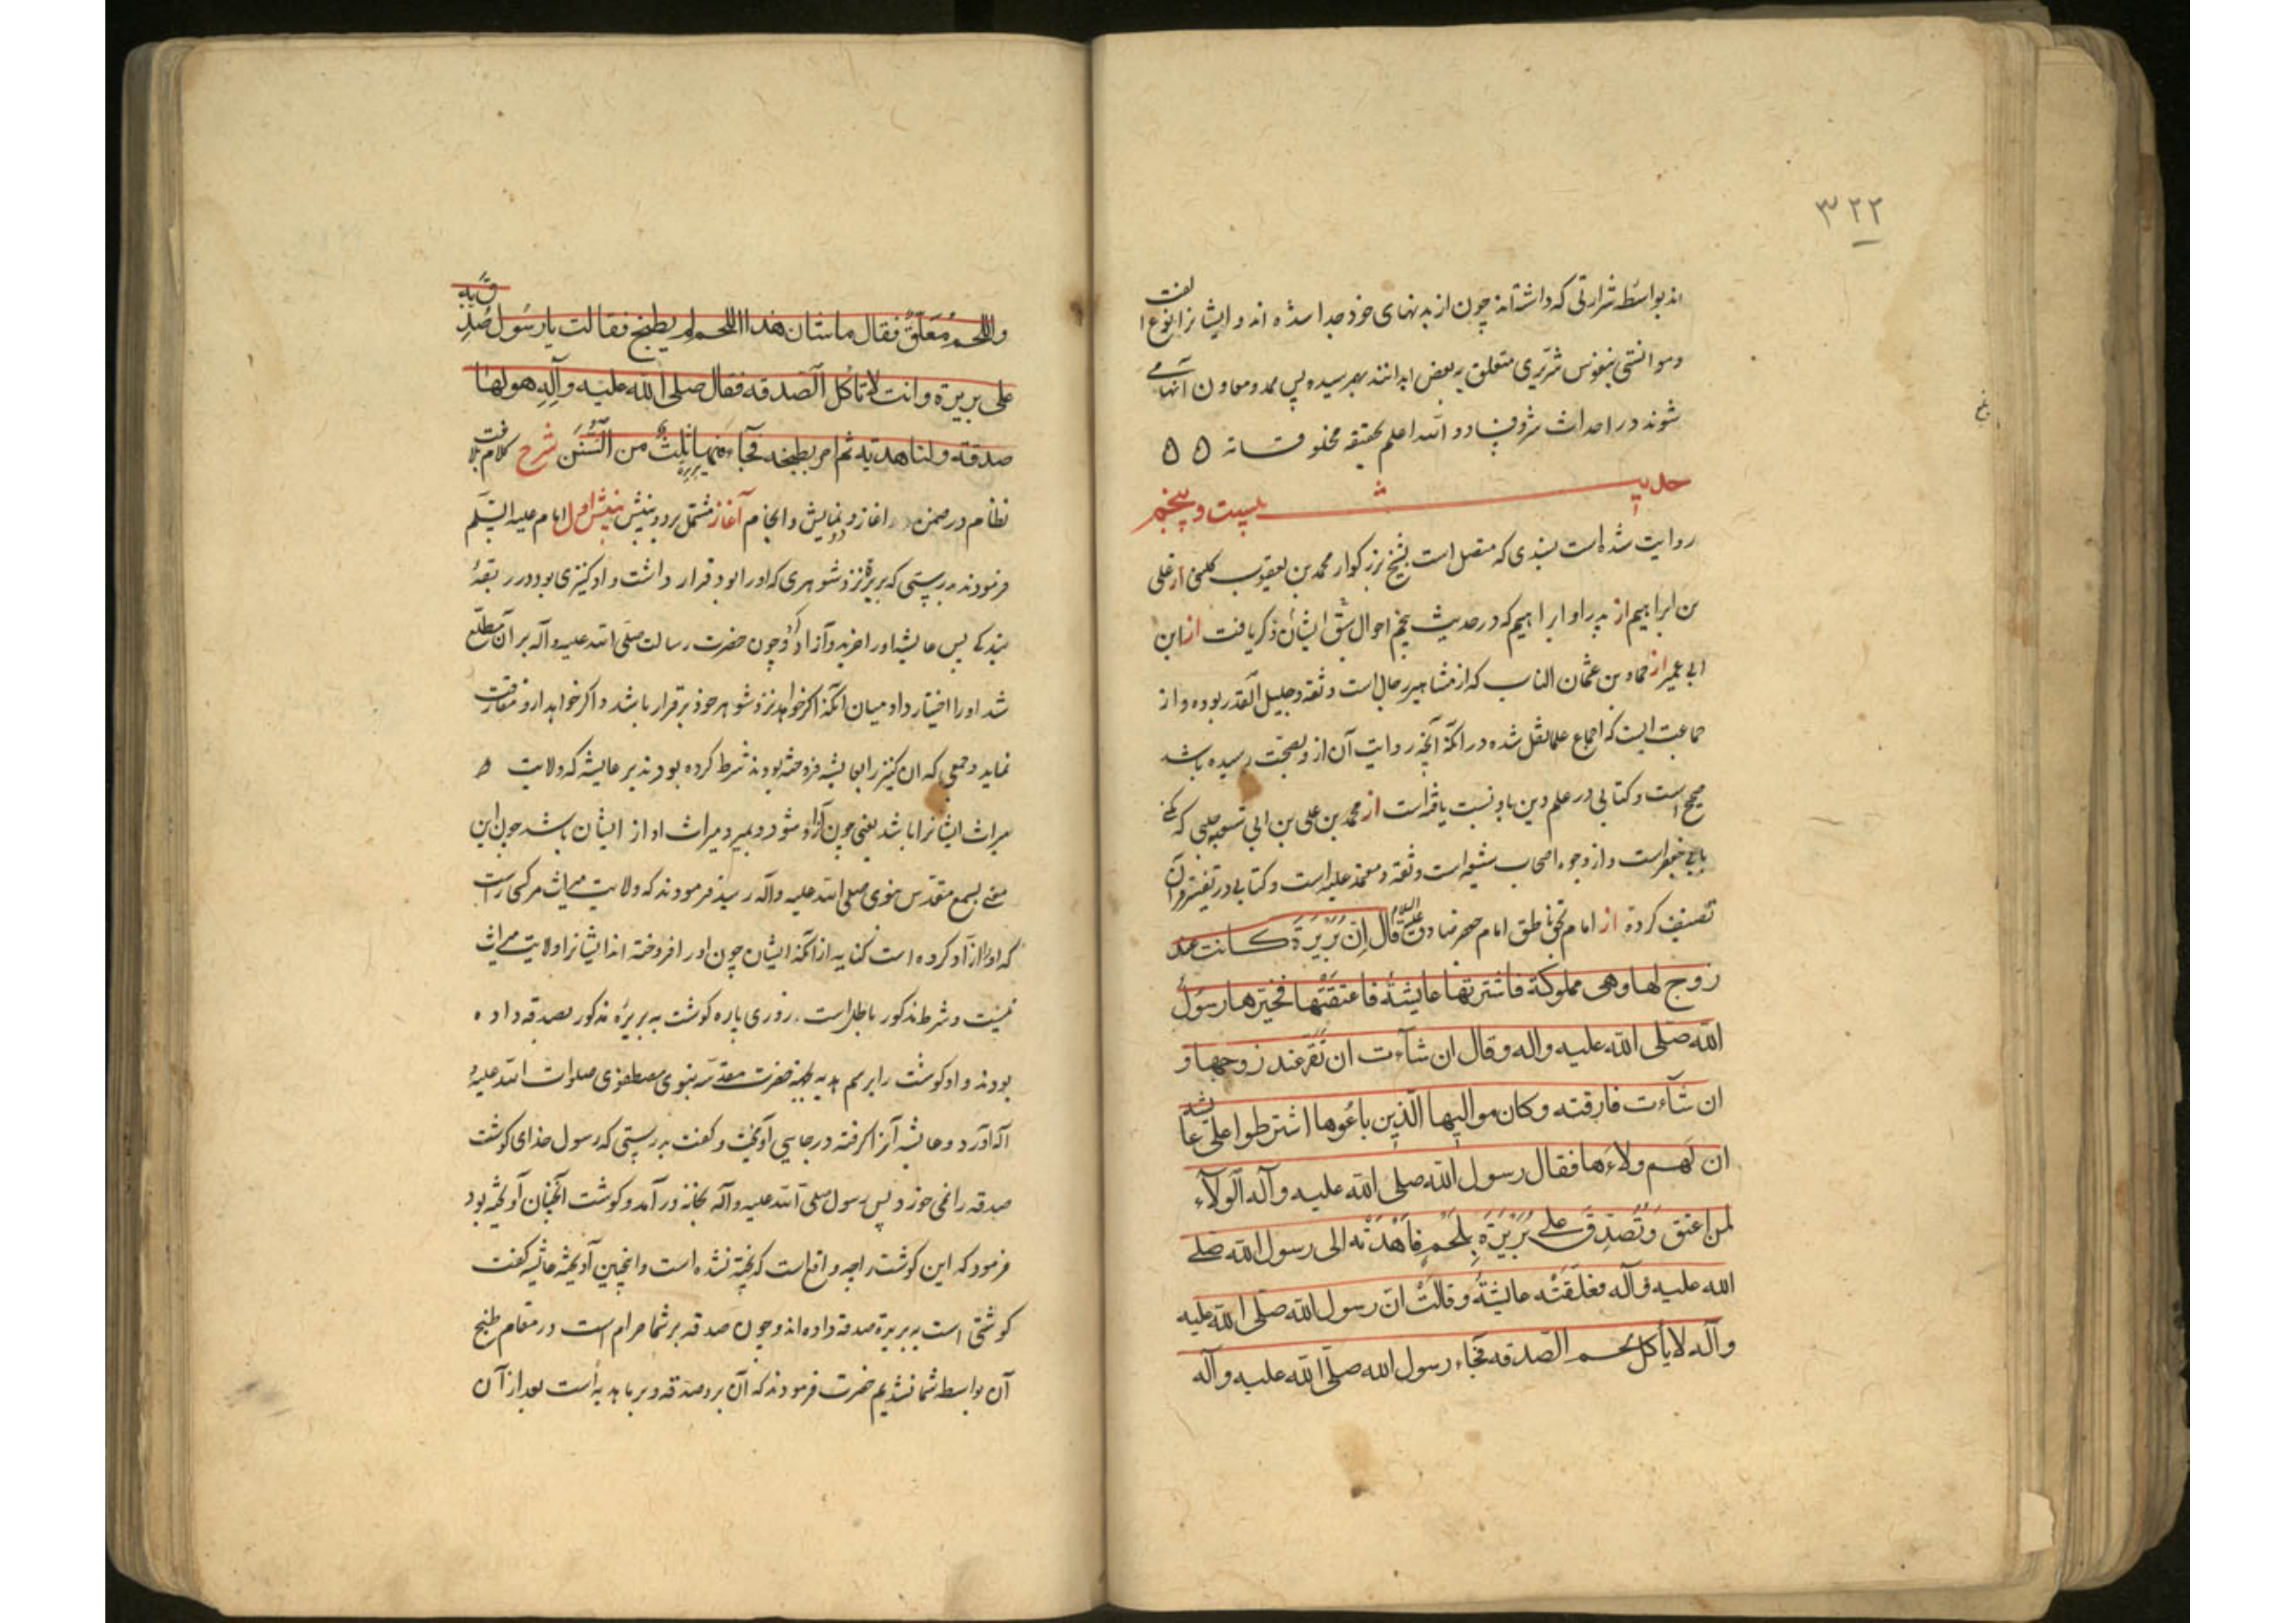 ٣٢٢
اند بواسطه شرارتی که داشته‌اند چون از بدنهای خود جدا شده اند و ایشانرا نوع الفت
و موانستی بنفوس شریری متعلق ببعض ابدانند بهم رسیده پس ممد و معاون آنها می
شوند در احداث شر و فساد و الله اعلم بحقیقه مخلوقاته ۵ ۵
حدیث بیست و پنجم
روایت شده است بسندی که متصل است بشیخ بزرکوار محمد بن یعقوب کلینی از علی
بن ابراهیم از پدر او ابراهیم که در حدیث پنجم احوال ایشان ذکر یافت از ابن
ابی عمیر از حماد بن عثمان الناب که از مشاهیر رجال است و ثقه و جلیل القدر بوده و از
جماعت ایست که اجماع علما نقل شده در آنکه آنچه روایت آن از و بصحت رسیده باشد
صحیح است و کتابی در علم دین باو نسبت یافته است از محمد بن علی بن ابی شعبه حلبی که مکنی
بابی جعفر است و از وجوه اصحاب شیعه است و ثقه و معتمد علیه است و کتابی در تفسیر قرآن
تصنیف کرده از امام بحق ناطق امام جعفر صادق علیه السلام قال اِن بُرَیرَةَ کانت عند
زوج لها و هی مملوکة فاشترتها عایشة فاعتقتها فخیرها رسول
الله صلی الله علیه واله وقال ان شاءت ان تقر عند زوجها و
ان شاءت فارقته وکان موالیها الذین باعوها اشترطوا علی عایشه
ان لهم ولاءها فقال رسول الله صلی الله علیه وآله الولاء
لمن اعتق وَتُصُدِّقَ علی بُرَیرَةَ بِلَحْمٍ فَاَهْدَتْه الی رسول الله صلی
الله علیه وآله فعلقته عایشة وقالت ان رسول الله صلی الله علیه
وآله لا یأکل لحم الصدقه فجاء رسول الله صلی الله علیه وآله
واللحم مُعَلَّقٌ فقال ما شان هذا اللحم لم یطبخ فقالت یا رسول صُدِّق به
علی بریرة وانت لا تأکل الصدقه فقال صلی الله علیه وآله هو لها
صدقة ولنا هدیة ثم امر بطبخه فجاء فیها ثلثٌ من السُّنَن شرح کلام بلاغت
نظام در ضمن آغاز و دو نمایش و انجام آغاز مشتمل بر دو بینش بینش اول امام علیه السلام
فرمودند بدرستی که بریره نزد شوهری که او را بود قرار داشت و او کنیزی بود در ربقهٔ
بندکی پس عایشه او را خرید و آزاد کرد و چون حضرت رسالت صلی الله علیه و آله بر آن مطلع
شد او را اختیار داد میان آنکه اکر خواهد نزد شوهر خود برقرار باشد و اکر خواهد ازو مفارقت
نماید و جمعی که ان کنیز را بعایشه فروخته بودند شرط کرده بودند بر عایشه که ولایت
میراث ایشانرا باشد یعنی چون آزاد شود و بمیرد میراث او از ایشان باشد چون این
معنی بسمع مقدس نبوی صلی الله علیه و آله رسید فرمودند که ولایت میراث مر کسی راست
که او را آزاد کرده است کنایه از آنکه ایشان چون او را فروخته اند ایشانرا ولایت میراث
نیست و شرط مذکور باطل است روزی پاره کوشت به بریره مذکور بصدقه داده
بودند و او کوشت را برسم هدیه بحضرت مقدسه نبوی مصطفوی صلوات الله علیه و
آله آورد و عایشه آنرا کرفته در جایی آویخت و کفت بدرستی که رسول خدای کوشت
صدقه را نمی خورد پس رسول صلی الله علیه و آله بخانه در آمد و کوشت آنچنان آویخته بود
فرمود که این کوشت را چه واقع است که پخته نشده است و انچنین آویخته عایشه کفت
کوشتی است به بریره صدقه داده اند و چون صدقه بر شما حرام است در مقام طبخ
آن بواسطه شما نشدیم حضرت فرمودند که آن برو صدقه و بر ما هدیه است بعد از آن